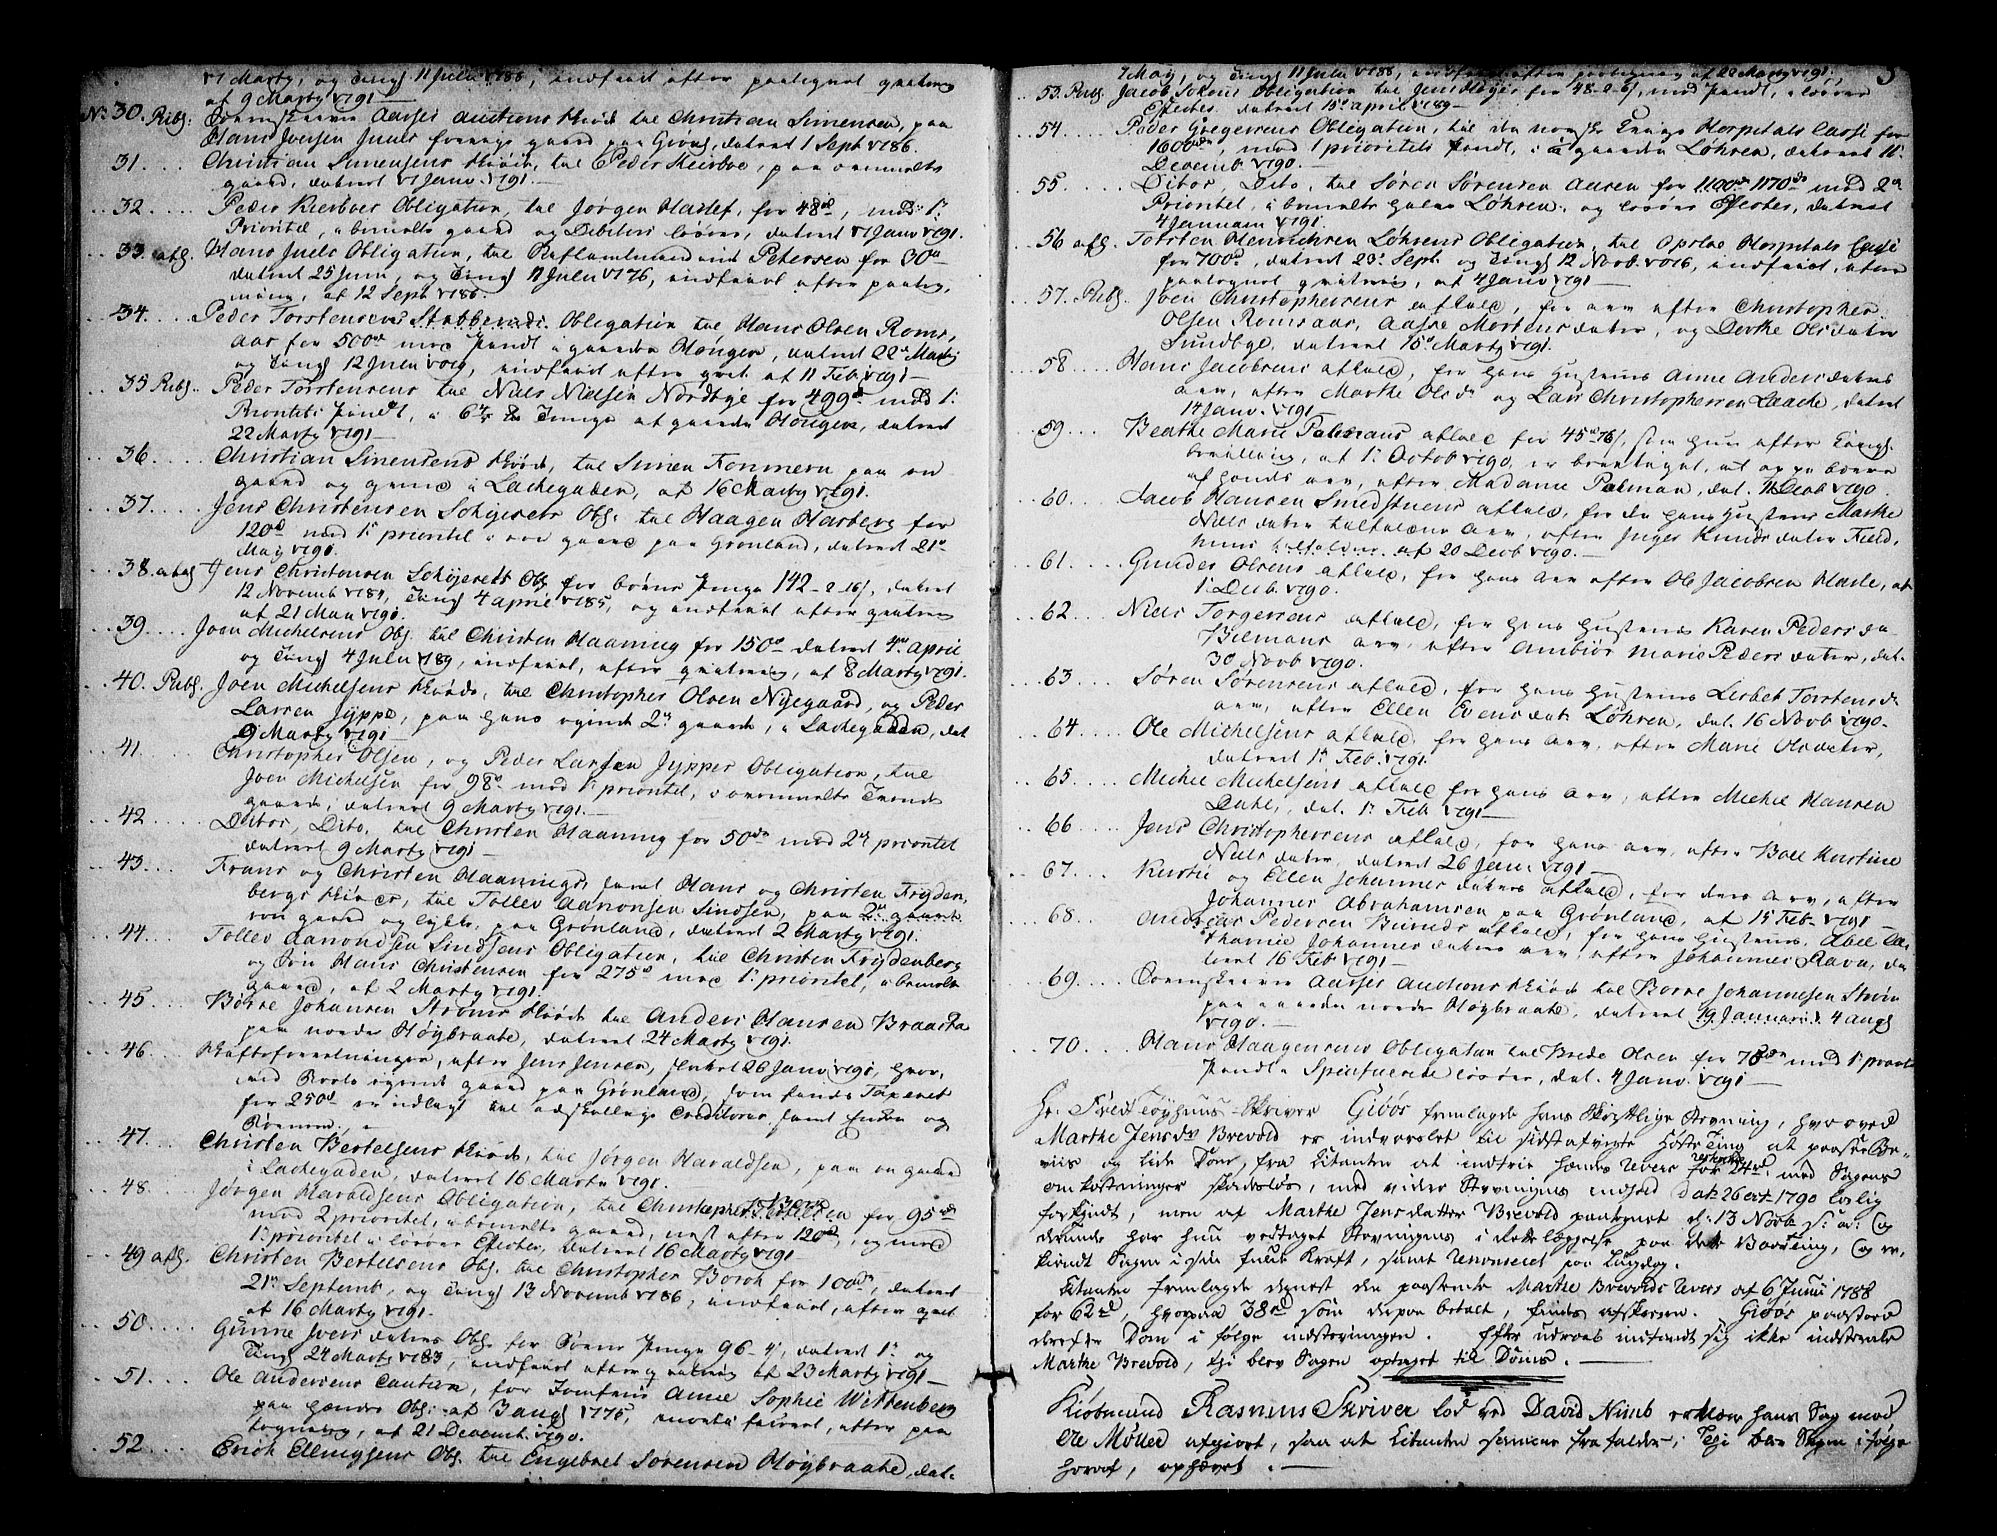 17 Marty, og Tingl. 11 Julii 1786, indfriet efter paategnet qvittering
af 9 Marty 1791 —
No. 30. Publ. Sorenskriver Aasses Auctions Skiøde til Christian Simensen, paa
Hans Joensen Juuls forrige gaard paa Grønl, datert 1 Sept 1786.
31. Christian Simensens Skiøde, til Peder Kierboe, paa ommelte
gaard, datert 17 Janv. 1791. —
32. Peder Kierboes Obligation, til Jørgen Haslef, for 48rd, med 1te
Prioritet, i bemelte gaard og Debitors løsøre, datert 17 Janv 1791.
33. afl. Hans Juels Obligation, til Petersen for 30rd
datert 25 Juni, og Tingl 11 Julii 1776, indfriet efter paateg-
ning, af 12 Sept 1786.
34. Peder Torstensens Stubberuds Obligation til Hans Olsen Roms-
aas for 500rd med Pandt i gaarden Hougen, datert 22de Marty
og Tingl 12 Julii, indfriet efter qvit. af 11 Feb 1791 —
35 Publ. Peder Torstensens til Niels Nielsen Nordbye for 499rd med 1te
Prioritets Pandt, i Tunge af gaarden Hougen, datert
22 Marty 1791 —
36. Christian Simensens Skiøde, til Simen Tommesen paa en
gaard og grund i Lackegaden, af 16 Marty 1791.
37. Jens Christensen Schjerets Obl: til Haagen Harberg for
120rd med 1te prioritet i sin gaard paa Grønland, datert 21de
May 1790.
38. afl. Jens Christensen Schøjeretts Obl. for børns Penge 142 - 2 - 16 s, datert
12 Novemb 1784, Tingl 4 April 1785, og indfriet efter qvittering
af 21 Mar 1791.
39. Joen Michelsens Obl. til Christen Haaning for 150rd datert 4de April
og Tingl 4 Julii 1789, indfriet, efter qvittering, af 8 Marty 1791.
40. Publ. Joen Michelsens Skiøde, til Christopher Olsen Nyegaard, og Peder
Larsen Jyppe, paa hans eiende 2de gaarde, i Lackegaden, dat
9 Marty 1791 —
41. Christopher Olsen, og Peder Larsen Jyppes Obligation, til
Joen Michelsen for 98rd med 1te prioritet, i ommelte Tvende
gaarde, datert 9 Marty 1791.
42. Ditos, Dito, til Christen Haaning for 50rd med 2den prioritet
datert 9 Marty 1791 —
43. Frans og Christen Haanings, samt Hans og Christen Frydens-
bergs Skiøde, til Tollev Aanonsen Sindsen, paa 2de gaarde
og løkke, paa Grønland, datert 2 Marty 1791.
44. Tollev Aanondsen Sindsens Obligation, til Christen Frydenberg
og Søn Hans Christensen for 275rd med 1te prioritet, i bemelte
gaard, af 2 Marty 1791.
45 Børre Johansen Strøms Skiøde til Anders Hansen Braaska
paa nordre Høybraate, datert 24 Marty 1791.
46 Skifteforretninger, efter Jens Jensen, sluttet 26 Janv 1791, hvor-
ved Boets eiende gaard paa Grønland, som findes Taxeret
for 250rd er udlagt til adskellige Creditorer samt Enken og
Børnene. —
47. Christen Bertelsens Skiøde, til Jørgen Haraldsen, paa en gaard
i Lackegaden, datert 16 Marty 1791.
48. Jørgen Haraldsens Obligation, til Christopher Bertelsen for 95rd
med 2 prioritet, i bemelte gaard, nest efter 120rd, og med
1te prioritet i løsøre Effecter, datert 16 Marty 1791 —
49 afl. Christen Bertelsens Obl. til Christopher Borch for 100rd, datert
21de Septemb, og Tingl 13 Novemb 1786, indfriet, efter qvit
af 16 Marty 1791.
50. Gunne Ivers datters Obl. for Børne Penge 96 - 4, datert 1te og
Tingl 24 Marts 1783, indfriet efter qvittering af 23 Marty 1791 —
51. Ole Andersens Caution, for Jomfrue Anne Sophie Wittenberg
paa hendes Obl: af 3 Augl 1775, mortificeret, efter paa
tegning, af 21 Decemb. 1790.
52. Erich Ellingsens Obl. til Engebret Sørensen Høybraate, dat.
7 May, og Tingl 11 Julii 1786, indfriet efter paategning af 22 Marty 1791.
5
53. Publ. Jacob Obligation til for 48 - 2 - 6 s, med Pandt, i løsøre
Effecter, datert 15 April 1789 —
54. Peder Gregersens Obligation, til den norske Tugt Hospitals Casse for
1600rd, med 1 prioritets Pandt, i gaarden Løhren, datert 11te
Decemb 1790. —
55. Ditos, Dito, til Søren Sørensen Aasen for 1100rd 1170rd med 2den
Prioritet, i bemelte halve Løhren, og løsøre Effecter, datert
4 Januarii 1791.
56 afl. Torsten Henrichsen Løhrens Obligation, til Opsloe Hospitals Casse
for 700rd, datert 29de Sept. og Tingl 12 Novb. 1776, indfriet, efter
paategnet qvittering, af 4 Janv 1791 —
57. Publ. Joen Christophersens afkald, for arv efter Christopher
Olsen Romsaas, Aasse Mortens datter, og Dorthe Olsdatter
Sundbye, datert 15de Marty 1791.
58 Hans Jacobsens afkald, for hans Hustrues Anne Anders datters
arv, efter Marthe Olsdr. og Lars Christophersen Laache, datert
14 Janv. 1791 —
59 Beathe Marie Palmans afkald for 45rd 76 s, som hun efter Tingl
bevilling, af 1te Octob 1790, er berettiget, at oppebære
af hendes arv, efter Madame Palman, dat. 11 Decb 1790.
60. Jacob Hansen Smedstuens afkald, for den hans Hustrues Marthe
Niels datter tilfaldne arv, efter Inger Knuds datter Field,
hende af 20 Decb 1790. —
61. Gunder Olsens afkald, for hans arv efter Ole Jacobsen Hasle, af
1te Decb. 1790.
62 Niels Torgersens afkald, for hans Hustrues Karen Peders da-
Bilemans arv, efter Ambior Marie Peders datter, dat.
30 Novb 1790.
63 Søren Sørensens afkald, for hans Hustrues Lisbet Torstensdr
arv, efter Ellen Evensdatr Løhren, dat. 16 Novb 1790.
64 Ole Michelsens afkald, for hans arv, efter Marie Olsdatter,
datert 1te Feb. 1791.
65. Michel Michelsens afkald for hans arv, efter Michel Hansen
Dahl, dat. 1te Feb 1791 —
66 Jens Christophersens afkald, for hans arv, efter Boel Kirstine
Niels datter, datert 26 Janv 1791 —
67. Kirstie og Ellen Johannes datters afkald, for deres arv, efter
Johannes Abrahamsen paa Grønland, af 15 Feb. 1791 —
68. Andreas Pedersen Bierids afkald, for hans Hustrues, Abel Ca-
tharine Johannes datters arv, efter Johannes Ravn, da-
tert 16 Feb 1791 —
69. Sorenskriver Aasses Auctions Skiøde til Børre Johannesen Strøm
paa gaarden nordre Høybraate, datert 19 Januarii 4 Augl
1790. —
70. Hans Haagensens Obligation til Brede Olsen for 78rd med 1te priorit
Pandt i løsøre, dat. 4 Janv. 1791 —
Hr. Tøyhuus-Skriver Giøs fremlagde hans Skriftlige Stevning, hvorved
Marthe Jensdr Brevold er indvarslet til sidstafvigte Høste Ting at paasee Be-
viis og lide Dom, fra Citanten at indfrie hendes Revers resterende for 24rd, med Sagens
omkostninger skadesløs, med videre Stevningens indhold dat. 26 oct. 1790 lovlig
forkyndt, men af Marthe Jensdatter Brevold paategnet d: 13 Novb s: a: og
derunder har hun vedtaget Stevningens i rettelæggelse paa dette Vaarting, og er-
kiendt Sagen i sin fulde Kraft, samt renonceret paa Laugdag.
Citanten fremlagde dernest den paastevnte Marthe Brevolds Revers af 6 Junii 1788
for 62rd, hvorpaa 38rd som derpaa betalt, findes afskreven. Giøs paastod
derefter Dom i følge indstevningen. Efter udraab indfandt sig ikke indstevnte
Marthe Brevold, thi blev Sagen optaget til Doms. —
Kiøbmand Rasmus Skriver lod ved David Nimb erklære hans Sag mod
Ole Møller afgiort, saa at Citanten samme frafalder; Thi blev Sagen i følge
heraf, ophævet. —